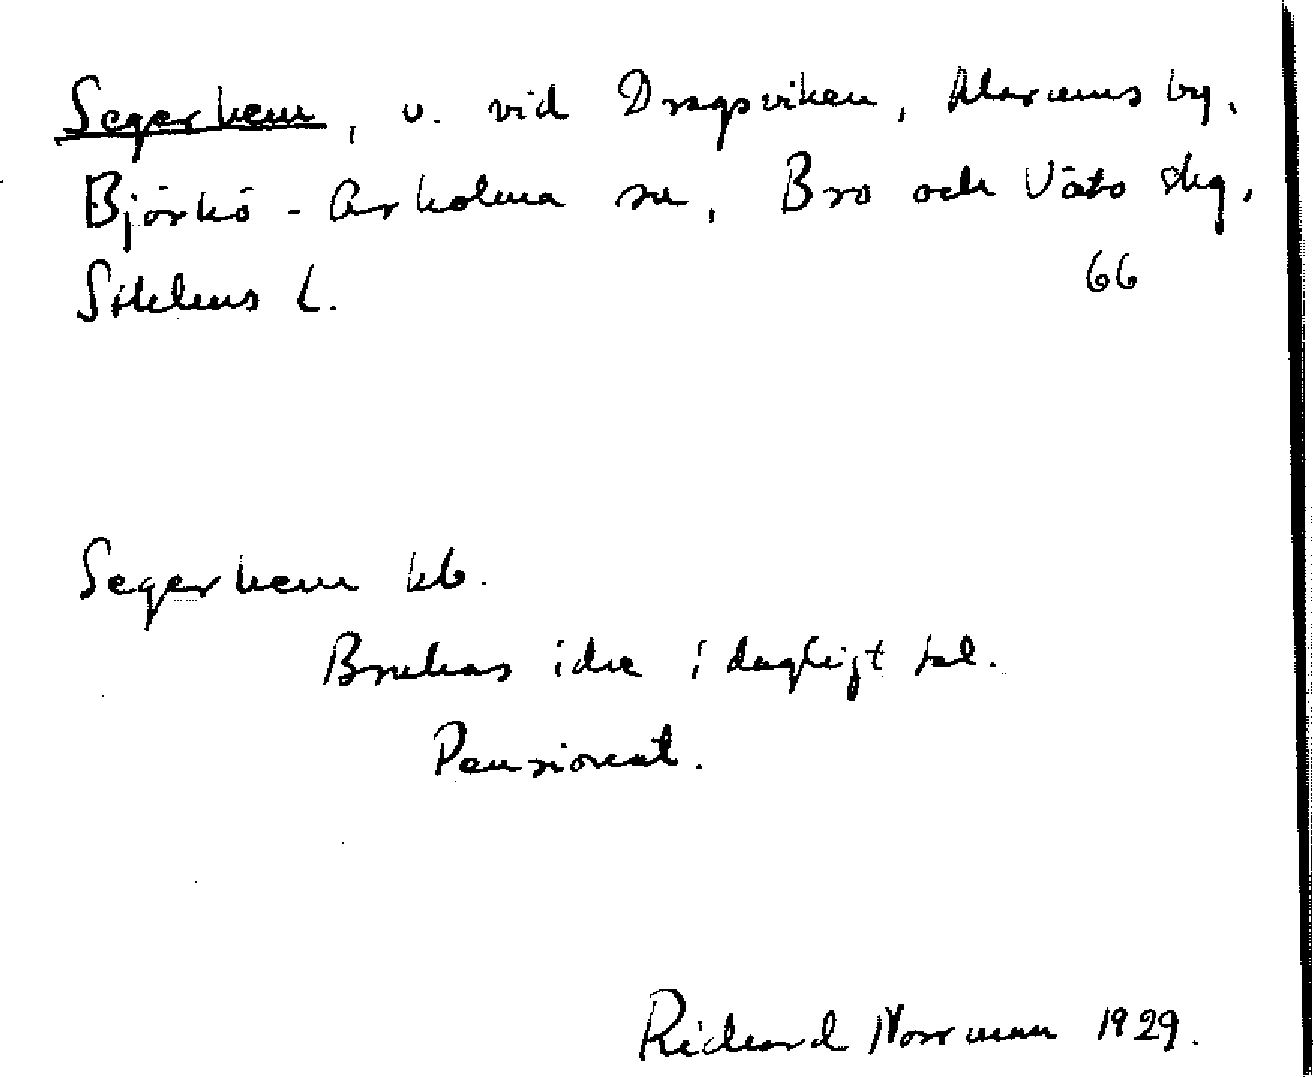 Segerhem, v. vid Dragsviken, Marums by,
Björkö-Arholma sn, Bro och Vätö skg,
Sthlms L. 66
Segerhem kb.
Brukas icke i dagligt tal.
Pensionat.
Richard Norrman 1929.